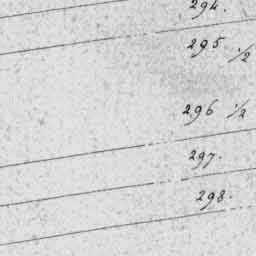 294.
295 1/2
296 1/2
297.
298.